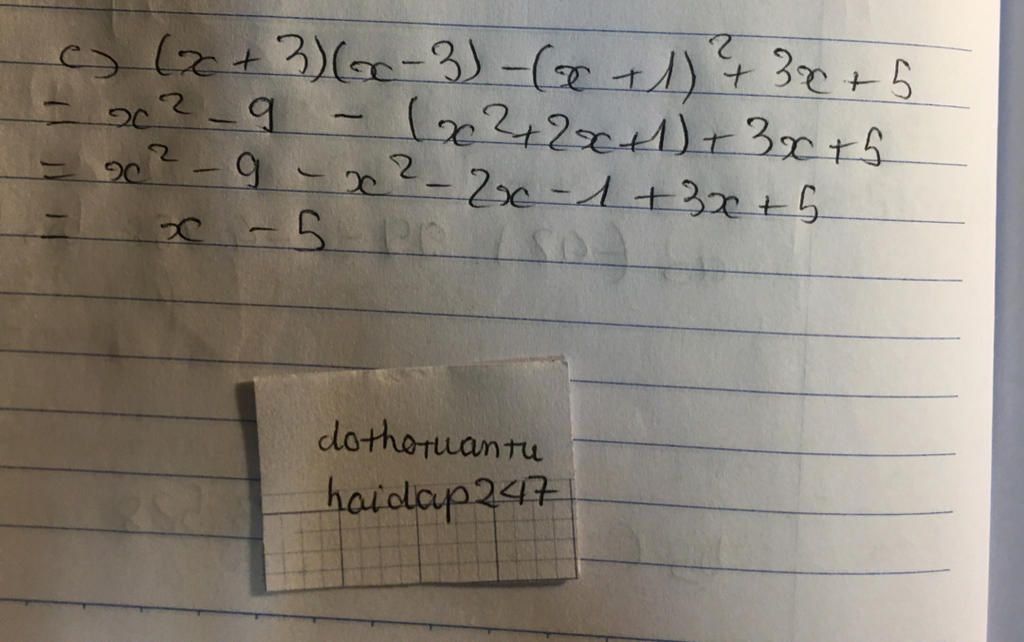 c) (x + 3)(x - 3) - (x + 1)² + 3x + 5
= x² - 9 - (x² + 2x + 1) + 3x + 5
= x² - 9 - x² - 2x - 1 + 3x + 5
= x - 5
dothotuantu
haidap247